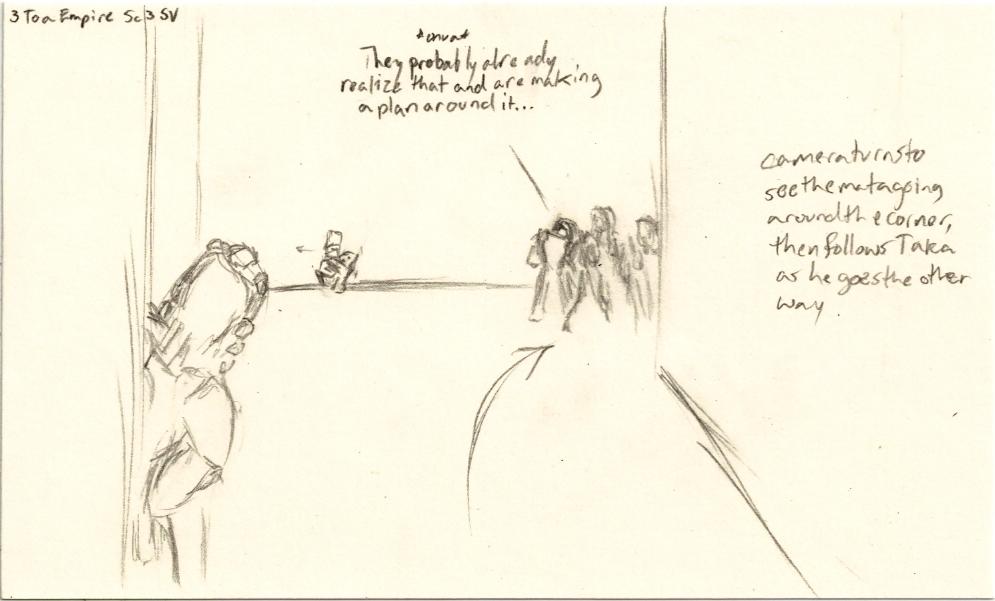 3 Toa Empire Sc 3 SV
They probably already
realize that and are making
a plan around it...
camera turns to
see the matagoing
around the corner,
then follows Taka
as he goes the other
way.